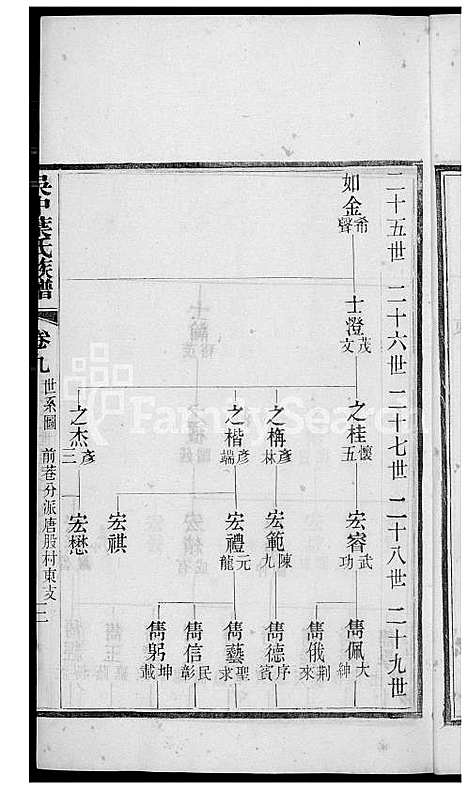 二十五世 二十六世 二十七世 二十八世 二十九世
如金 希聲
士澄 茂文
之桂 懷五
宏睿 武功
雋佩 大紳
雋俄 荆來
之栴 彥林
宏範 陳九
雋德 序賓
之楷 彥端
宏禮 元龍
雋藝 聖求
雋信 民彰
雋躬 坤載
宏祺
之杰 彥三
宏懋
吳中葉氏族譜 卷九 世系圖 前巷分派唐股村東支 二
FamilySearch